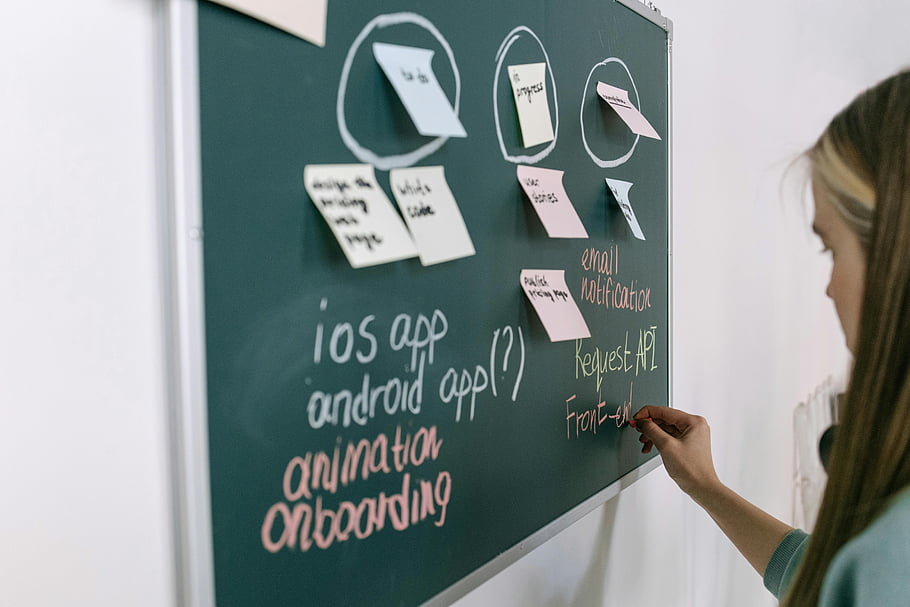 to do
in
progress
design the
pricing
web
page
write
code
user
stories
publish
pricing page
email
notification
Request API
Front-en
ios app
android app(?)
animation
onboarding